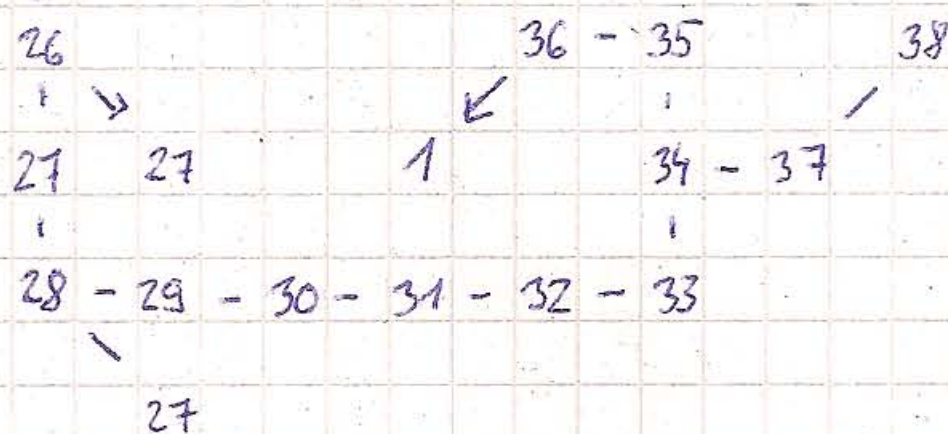 26 36 - 35 38
27 27 1 34 - 37
28 - 29 - 30 - 31 - 32 - 33
27